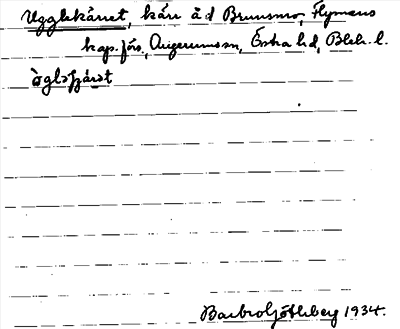 Ugglekärret, kärr å d Brunsmo, Flymens
kap. förs., Augerums sn, Östra hd, Blek. l.
ò̀glaʃjärət
Barbro Götlberg 1934.